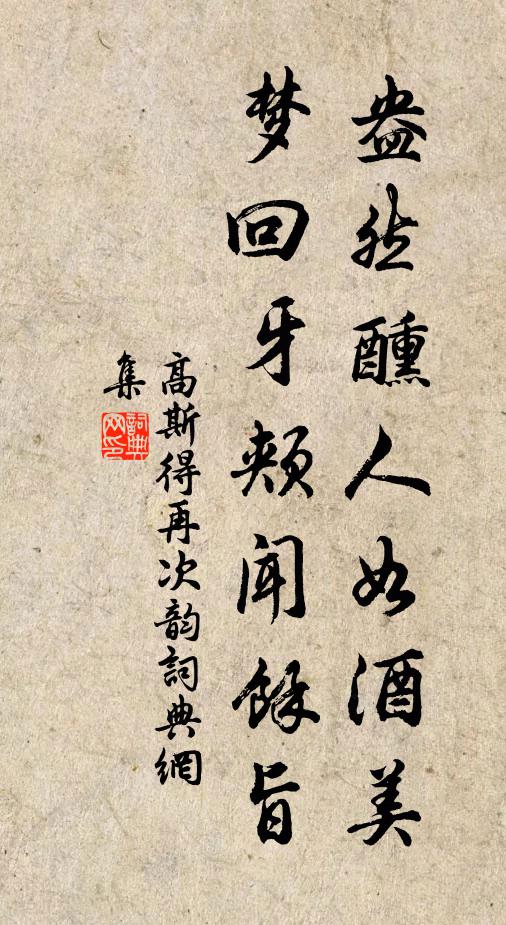 盎然醺人如酒美
梦回牙颊闻餘旨
高斯得再次韵詞典網
集
詞典
网印